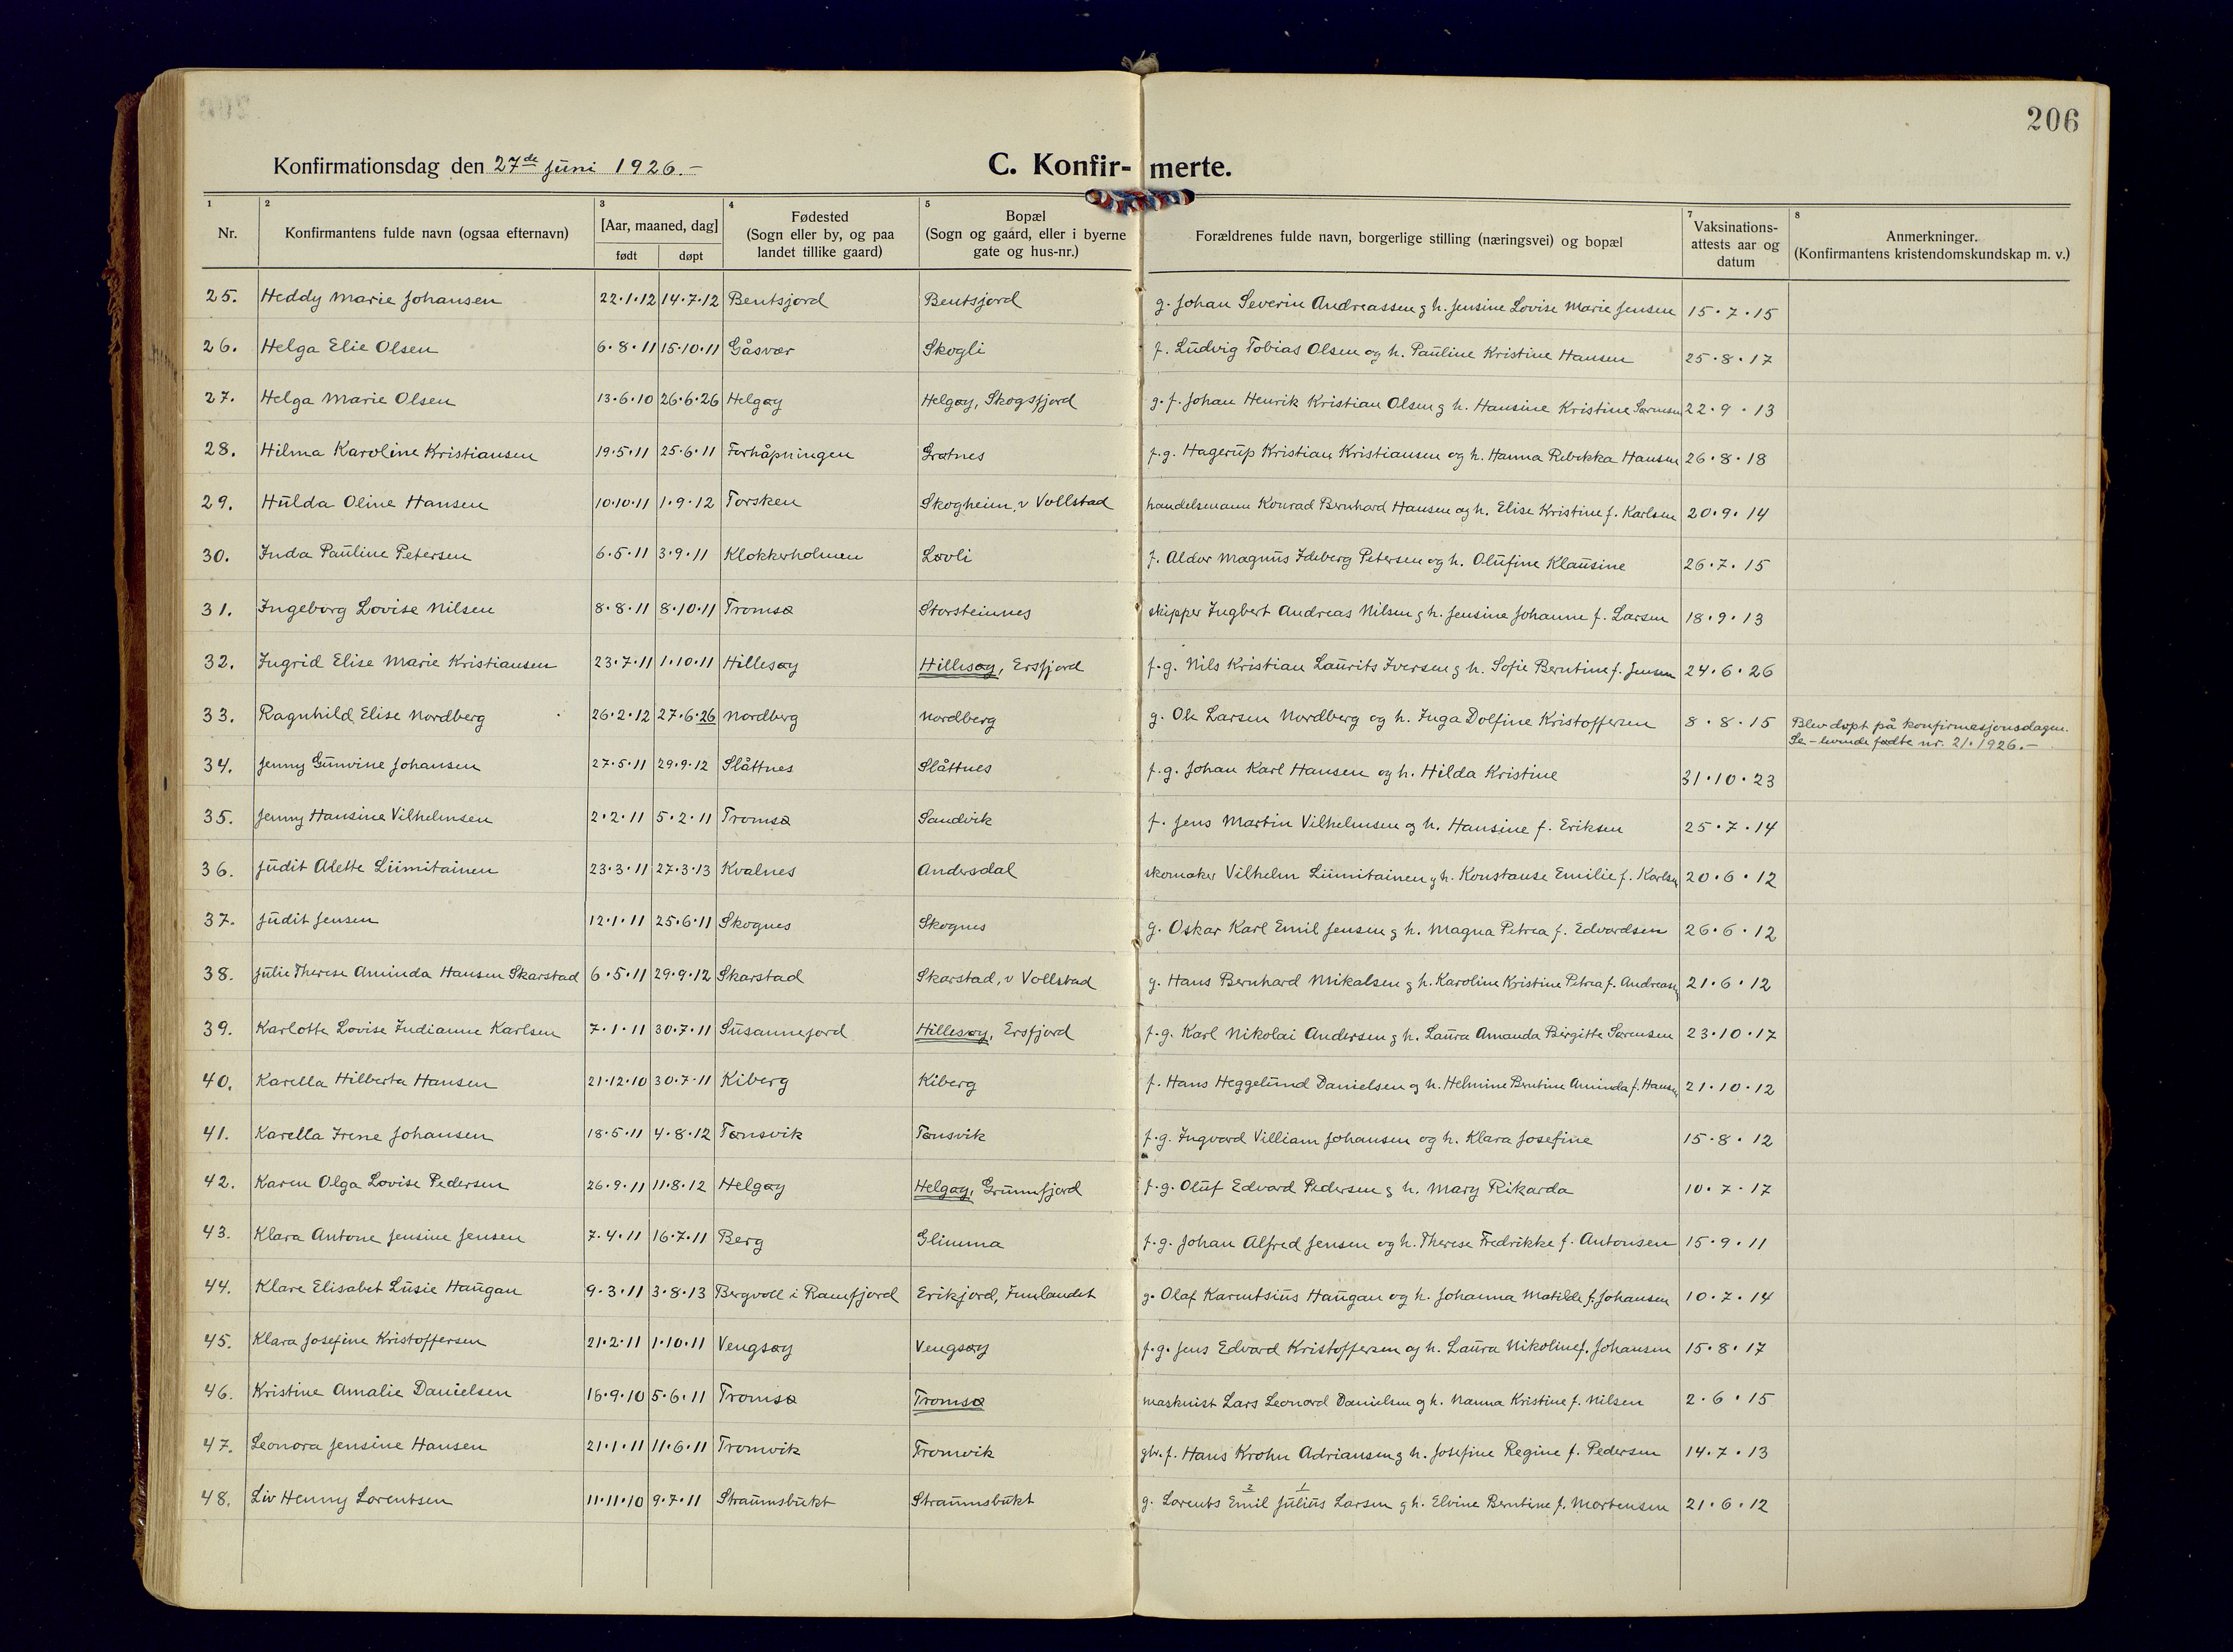 206
Konfirmationsdag den 27de juni 1926.-
C. Konfir- merte.
1 Nr.
2 Konfirmantens fulde navn (ogsaa efternavn)
3 [Aar, maaned, dag]
født døpt
4 Fødested
(Sogn eller by, og paa
landet tillike gaard)
5 Bopæl
(Sogn og gaård, eller i byerne
gate og hus-nr.)
Forældrenes fulde navn, borgerlige stilling (næringsvei) og bopæl
7 Vaksinations-
attests aar og
datum
8 Anmerkninger.
(Konfirmantens kristendomskundskap m. v.)
25. Heddy Marie Johansen 22.1.12 14.7.12 Bentsjord Bentsjord g. Johan Severin Andreassen g h. Jensine Lovise Marie Jensen 15.7.15
26. Helga Elie Olsen 6.8.11 15.10.11 Gåsvær Skogli f. Ludvig Tobias Olsen og h. Pauline Kristine Hansen 25.8.17
27. Helga Marie Olsen 13.6.10 26.6.26 Helgøy Helgøy, Skogsfjord g.f. Johan Henrik Kristian Olsen g h. Hansine Kristine Sørensen 22.9.13
28. Hilma Karoline Kristiansen 19.5.11 25.6.11 Forhåpningen Grøtnes f.g. Hagerup Kristian Kristiansen og h. Hanna Rebekka Hansen 26.8.18
29. Hulda Oline Hansen 10.10.11 1.9.12 Torsken Skogheim, v Vollstad handelsmann Konrad Bernhard Hansen og h. Elise Kristine f. Karlsen 20.9.14
30. Inda Pauline Petersen 6.5.11 3.9.11 Klokkerholmen Løvli f. Aldor Magnus Ideberg Petersen og h. Olufine Klausine 26.7.15
31. Ingeborg Lovise Nilsen 8.8.11 8.10.11 Tromsø Storsteinnes skipper Ingbert Andreas Nilsen g h. Jensine Johanne f. Larsen 18.9.13
32. Ingrid Elise Marie Kristiansen 23.7.11 1.10.11 Hillesøy Hillesøy, Ersfjord f.g. Nils Kristian Laurits Iversen g h. Sofie Berntine f. Jensen 24.6.26
33. Ragnhild Elise Nordberg 26.2.12 27.6.26 Nordberg Nordberg g. Ole Larsen Nordberg og h. Inga Dolfine Kristoffersen 8.8.15 Blev døpt på konfirmasjonsdagen.
Se - levende fødte nr. 21. 1926.-
34. Jenny Gunvine Johansen 27.5.11 29.9.12 Slåttnes Slåttnes f.g. Johan Karl Hansen og h. Hilda Kristine 31.10.23
35. Jenny Hansine Vilhelmsen 2.2.11 5.2.11 Tromsø Sandvik f. Jens Martin Vilhelmsen g h. Hansine f. Eriksen 25.7.14
36. Judit Alette Liimitainen 23.3.11 27.3.13 Kvalnes Andersdal skomaker Vilhelm Liimitainen g h. Konstanse Emilie f. Karlsen 20.6.12
37. Judit Jensen 12.1.11 25.6.11 Skognes Skognes g. Oskar Karl Emil Jensen g h. Magna Petrea f. Edvardsen 26.6.12
38. Julie Therese Aminda Hansen Skarstad 6.5.11 29.9.12 Skarstad Skarstad, v Vollstad g. Hans Bernhard Mikalsen g h. Karoline Kristine Petrea f. Andreasen 21.6.12
39. Karlotte Lovise Indianne Karlsen 7.1.11 30.7.11 Susannejord Hillesøy, Ersfjord f.g. Karl Nikolai Andersen g h. Laura Amanda Birgitte Sørensen 23.10.17
40. Karella Hilberta Hansen 21.12.10 30.7.11 Kiberg Kiberg f. Hans Heggelund Danielsen g h. Helmine Berntine Aminda f. Hansen 21.10.12
41. Karella Irene Johansen 18.5.11 4.8.12 Tønsvik Tønsvik f.g. Ingvard Villiam Johansen og h. Klara Josefine 15.8.12
42. Karen Olga Lovise Pedersen 26.9.11 11.8.12 Helgøy Helgøy, Grunnfjord f.g. Oluf Edvard Pedersen g h. Mary Rikarda 10.7.17
43. Klara Antone Jensine Jensen 7.4.11 16.7.11 Berg Glimma f.g. Johan Alfred Jensen og h. Therese Fredrikke f. Antonsen 15.9.11
44. Klare Elisabet Lusie Haugan 9.3.11 3.8.13 Bergvoll i Ramfjord Erikjord, Finnlandet g. Olaf Karentsius Haugan og h. Johanna Matilde f. Johansen 10.7.14
45. Klara Josefine Kristoffersen 21.2.11 1.10.11 Vengsøy Vengsøy f.g. Jens Edvard Kristoffersen og h. Laura Nikoline f. Johansen 15.8.17
46. Kristine Amalie Danielsen 16.9.10 5.6.11 Tromsø Tromsø maskinist Lars Leonard Danielsen g h. Nanna Kristine f. Nilsen 2.6.15
47. Leonora Jensine Hansen 21.1.11 11.6.11 Tromvik Tromvik gbr. f. Hans Krohn Adriansen g h. Josefine Regine f. Pedersen 14.7.13
48. Liv Henny Lorentsen 11.11.10 9.7.11 Straumsbukt Straumsbukt g. Lorents Emil Julius Larsen g h. Elvine Berntine f. Mortensen 21.6.12